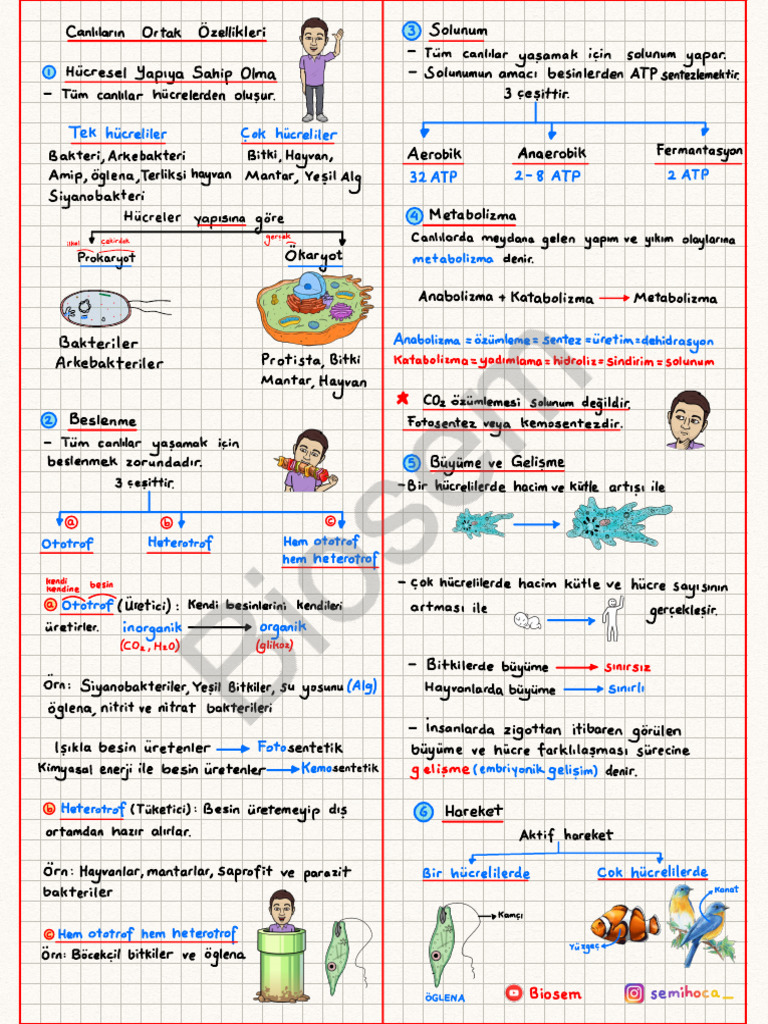 Canlıların Ortak Özellikleri
1 Hücresel Yapıya Sahip Olma
- Tüm canlılar hücrelerden oluşur.
Tek hücreliler
Çok hücreliler
Bakteri, Arkebakteri
Amip, öglena, Terliksi hayvan
Siyanobakteri
Bitki, Hayvan,
Mantar, Yeşil Alg
Hücreler yapısına göre
ilkel çekirdek
Prokaryot
gerçek
Ökaryot
Bakteriler
Arkebakteriler
Protista, Bitki
Mantar, Hayvan
2 Beslenme
- Tüm canlılar yaşamak için
beslenmek zorundadır.
3 çeşittir.
a
b
c
Ototrof
Heterotrof
Hem ototrof
hem heterotrof
kendi
kendine
besin
a Ototrof (Üretici) : Kendi besinlerini kendileri
üretirler. inorganik organik
(CO2, H2O) (glikoz)
Örn: Siyanobakteriler, Yeşil Bitkiler, su yosunu (Alg)
öglena, nitrit ve nitrat bakterileri
Işıkla besin üretenler Fotosentetik
Kimyasal enerji ile besin üretenler Kemosentetik
b Heterotrof (Tüketici) : Besin üretemeyip dış
ortamdan hazır alırlar.
Örn: Hayvanlar, mantarlar, Saprofit ve parazit
bakteriler
c Hem ototrof hem heterotrof
Örn: Böcekçil bitkiler ve öglena
3 Solunum
- Tüm canlılar yaşamak için solunum yapar.
- Solunumun amacı besinlerden ATP sentezlemektir.
3 çeşittir.
Aerobik
32 ATP
Anaerobik
2-8 ATP
Fermantasyon
2 ATP
4 Metabolizma
Canlılarda meydana gelen yapım ve yıkım olaylarına
metabolizma denir.
Anabolizma + Katabolizma Metabolizma
Anabolizma = özümleme = sentez = üretim = dehidrasyon
Katabolizma = yadımlama = hidroliz = sindirim = solunum
CO2 özümlemesi solunum değildir.
Fotosentez veya kemosentezdir.
5 Büyüme ve Gelişme
- Bir hücrelilerde hacim ve kütle artışı ile
- Çok hücrelilerde hacim kütle ve hücre sayısının
artması ile gerçekleşir.
- Bitkilerde büyüme sınırsız
Hayvanlarda büyüme sınırlı
- İnsanlarda zigottan itibaren görülen
büyüme ve hücre farklılaşması sürecine
gelişme (embriyonik gelişim) denir.
6 Hareket
Aktif hareket
Bir hücrelilerde
Çok hücrelilerde
Kamçı
Yüzgeç
Kanat
ÖGLENA
Biosem
semihoca_
Biosem